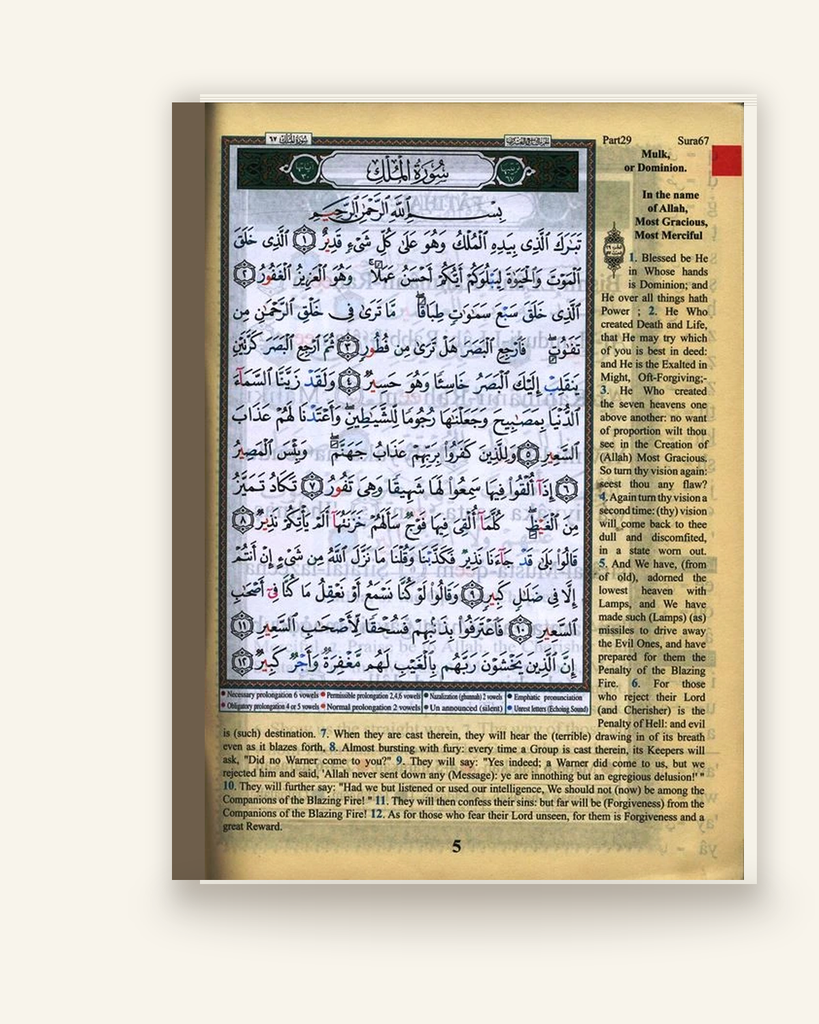 سورة الملك ٦٧
Part29 Sura67
Mulk,
or Dominion.
سُورَةُ الْمُلْكِ
بِسْمِ اللَّهِ الرَّحْمَٰنِ الرَّحِيمِ
تَبَٰرَكَ الَّذِى بِيَدِهِ الْمُلْكُ وَهُوَ عَلَىٰ كُلِّ شَىْءٍ قَدِيرٌ ١ الَّذِى خَلَقَ
الْمَوْتَ وَالْحَيَوٰةَ لِيَبْلُوَكُمْ أَيُّكُمْ أَحْسَنُ عَمَلًا ۚ وَهُوَ الْعَزِيزُ الْغَفُورُ ٢
الَّذِى خَلَقَ سَبْعَ سَمَٰوَٰتٍ طِبَاقًا ۖ مَّا تَرَىٰ فِى خَلْقِ الرَّحْمَٰنِ مِن
تَفَٰوُتٍ ۖ فَارْجِعِ الْبَصَرَ هَلْ تَرَىٰ مِن فُطُورٍ ٣ ثُمَّ ارْجِعِ الْبَصَرَ كَرَّتَيْنِ
يَنقَلِبْ إِلَيْكَ الْبَصَرُ خَاسِئًا وَهُوَ حَسِيرٌ ٤ وَلَقَدْ زَيَّنَّا السَّمَآءَ
الدُّنْيَا بِمَصَٰبِيحَ وَجَعَلْنَٰهَا رُجُومًا لِّلشَّيَٰطِينِ ۖ وَأَعْتَدْنَا لَهُمْ عَذَابَ
السَّعِيرِ ٥ وَلِلَّذِينَ كَفَرُوا۟ بِرَبِّهِمْ عَذَابُ جَهَنَّمَ ۖ وَبِئْسَ الْمَصِيرُ
٦ إِذَآ أُلْقُوا۟ فِيهَا سَمِعُوا۟ لَهَا شَهِيقًا وَهِىَ تَفُورُ ٧ تَكَادُ تَمَيَّزُ
مِنَ الْغَيْظِ ۖ كُلَّمَآ أُلْقِىَ فِيهَا فَوْجٌ سَأَلَهُمْ خَزَنَتُهَآ أَلَمْ يَأْتِكُمْ نَذِيرٌ ٨
قَالُوا۟ بَلَىٰ قَدْ جَآءَنَا نَذِيرٌ فَكَذَّبْنَا وَقُلْنَا مَا نَزَّلَ اللَّهُ مِن شَىْءٍ إِنْ أَنتُمْ
إِلَّا فِى ضَلَٰلٍ كَبِيرٍ ٩ وَقَالُوا۟ لَوْ كُنَّا نَسْمَعُ أَوْ نَعْقِلُ مَا كُنَّا فِىٓ أَصْحَٰبِ
السَّعِيرِ ١٠ فَاعْتَرَفُوا۟ بِذَنۢبِهِمْ فَسُحْقًا لِّأَصْحَٰبِ السَّعِيرِ ١١
إِنَّ الَّذِينَ يَخْشَوْنَ رَبَّهُم بِالْغَيْبِ لَهُم مَّغْفِرَةٌ وَأَجْرٌ كَبِيرٌ ١٢
Necessary prolongation 6 vowels Permissible prolongation 2,4,6 vowels Nazalization (ghunnah) 2 vowels Emphatic pronunciation
Obligatory prolongation 4 or 5 vowels Normal prolongation 2 vowels Un announced (silent) Unrest letters (Echoing Sound)
In the name
of Allah,
Most Gracious,
Most Merciful
1. Blessed be He
in Whose hands
is Dominion; and
He over all things hath
Power ; 2. He Who
created Death and Life,
that He may try which
of you is best in deed:
and He is the Exalted in
Might, Oft-Forgiving;-
3. He Who created
the seven heavens one
above another: no want
of proportion wilt thou
see in the Creation of
(Allah) Most Gracious.
So turn thy vision again:
seest thou any flaw?
4. Again turn thy vision a
second time: (thy) vision
will come back to thee
dull and discomfited,
in a state worn out.
5. And We have, (from
of old), adorned the
lowest heaven with
Lamps, and We have
made such (Lamps) (as)
missiles to drive away
the Evil Ones, and have
prepared for them the
Penalty of the Blazing
Fire. 6. For those
who reject their Lord
(and Cherisher) is the
Penalty of Hell: and evil
is (such) destination. 7. When they are cast therein, they will hear the (terrible) drawing in of its breath
even as it blazes forth, 8. Almost bursting with fury: every time a Group is cast therein, its Keepers will
ask, "Did no Warner come to you?" 9. They will say: "Yes indeed; a Warner did come to us, but we
rejected him and said, 'Allah never sent down any (Message): ye are innothing but an egregious delusion!' "
10. They will further say: "Had we but listened or used our intelligence, We should not (now) be among the
Companions of the Blazing Fire! " 11. They will then confess their sins: but far will be (Forgiveness) from the
Companions of the Blazing Fire! 12. As for those who fear their Lord unseen, for them is Forgiveness and a
great Reward.
5